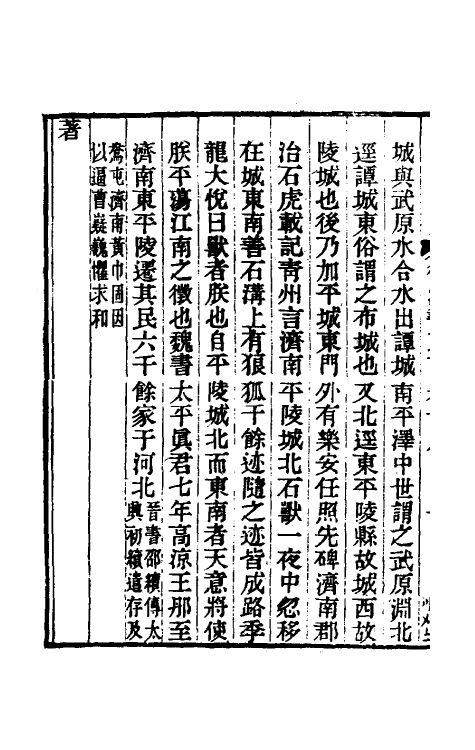 城與武原水合水出譚城南平澤中世謂之武原淵北
逕譚城東俗謂之布城也又北逕東平陵縣故城西故
陵城也後乃加平城東門外有樂安任照先碑濟南郡
治石虎載記靑州言濟南平陵城北石獸一夜中忽移
在城東南善石溝上有狼狐千餘迹隨之迹皆成路季
龍大悅曰獸者朕也自平陵城北而東南者天意將使
朕平蕩江南之徵也魏書太平眞君七年高涼王那至
濟南東平陵遷其民六千餘家于河北晉書邵續傳太
興初續遣存及
騫屯濟南黃巾固因
以逼曹嶷嶷懼求和
著